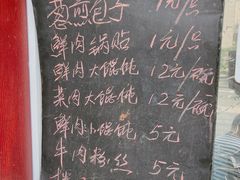 葱煎包子 1元/只
鲜肉锅贴 1元/只
鲜肉大馄饨 12元/碗
菜肉大馄饨 12元/碗
鲜肉小馄饨 5元
牛肉粉丝 5元